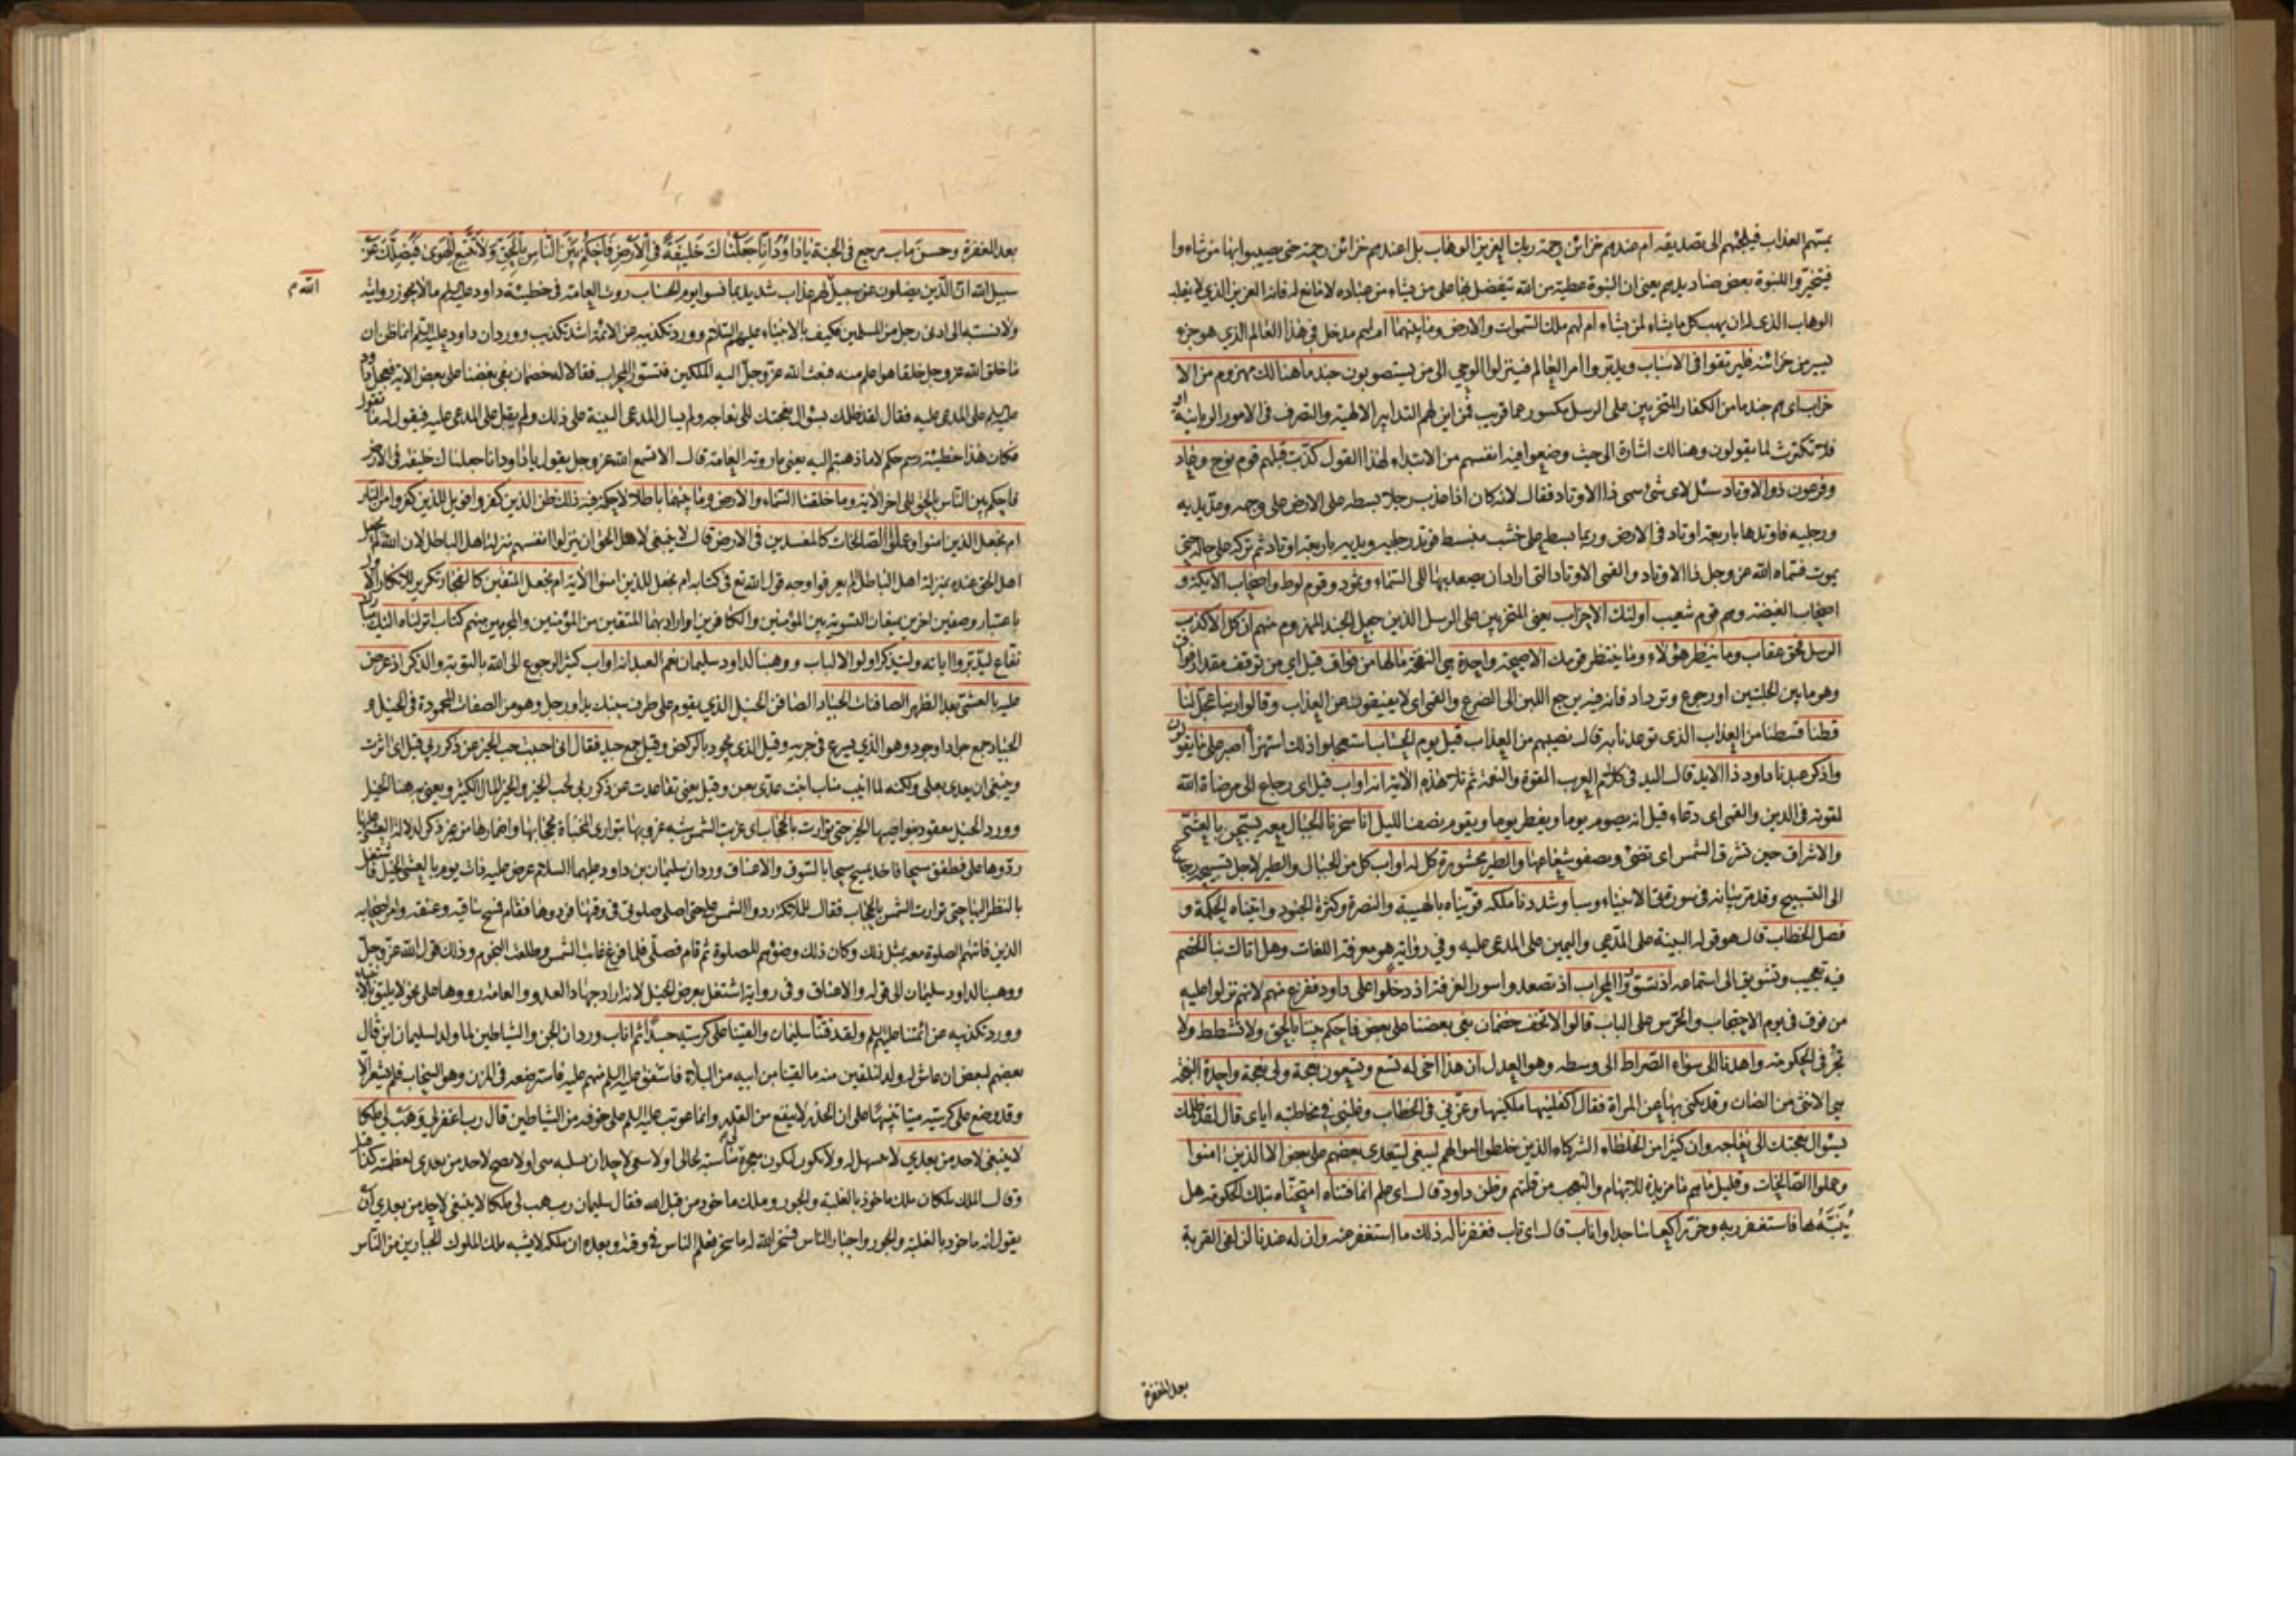 يمسّهم العذاب فيلجئهم الى تصديقه ام عندهم خزائن رحمة ربك العزيز الوهاب بل اعندهم خزائن رحمته حتى يصيبوا بها من شاءوا
فيتخيّروا للنبوة بعض صناديدهم يعنى ان النبوة عطية من الله يتفضل بها على من يشاء من عباده لا مانع له فانه العزيز الذي لا يغلب
الوهاب الذى له ان يهب كل ما يشاء لمن يشاء ام لهم ملك السموات والارض وما بينهما ام لهم مدخل فى هذا العالم الذي هو جزء
يسير من خزائنه فليرتقوا فى الاسباب ويدبّروا امر العالم فينزلوا الوحى الى من يستصوبون جند ما هنالك مهزوم من الا
حزاب اى هم جند ما من الكفار المتحزبين على الرسل مكسور عما قريب فمن اين لهم التدابير الالهية والتصرف فى الامور الربانية او
فلا تكترث لما يقولون وهنالك اشارة الى حيث وضعوا فيه انفسهم من الابتداء لهذا القول كذّبت قبلهم قوم نوح وعاد
وفرعون ذو الاوتاد سئل لاى شئ سمى ذا الاوتاد فقال لانه كان اذا عذب رجلا بسطه على الارض على وجهه ومدّ يديه
ورجليه فاوتدها باربعة اوتاد فى الارض وربما بسطه على خشب منبسط فوتد رجليه ويديه باربعة اوتاد ثم تركه على حاله حتى
يموت فسماه الله عز وجل ذا الاوتاد والقمى الاوتاد التى اراد ان يصعد بها الى السماء وثمود وقوم لوط واصحاب الأيكة و
اصحاب الغيضة وهم قوم شعيب اولئك الاحزاب يعنى المتحزبين على الرسل الذين جعل الجند المهزوم منهم ان كل الا كذب
الرسل فحق عقاب وما ينظر هؤلاء وما ينتظر قومك الا صيحة واحدة هى النفخة ما لها من فواق قيل اى من توقف مقدار فواق
وهو ما بين الحلبتين او رجوع وترداد فانه فيه يرجع اللبن الى الضرع والقمى اى لا يفيقون من العذاب وقالوا ربنا عجّل لنا
قطنا قسطنا من العذاب الذى توعدنا به قال نصيبهم من العذاب قبل يوم الحساب استعجلوا ذلك استهزاء اصبر على ما يقولون
واذكر عبدنا داود ذا الايد قال اليد فى كلام العرب القوة والنعمة ثم تلا هذه الآية انه اواب قيل اى رجاع الى مرضاة الله
لقوته فى الدين والقمى اى دعاء قيل انه يصوم يوما ويفطر يوما ويقوم نصف الليل انا سخرنا الجبال معه يسبّحن بالعشىّ
والاشراق حين تشرق الشمس اى تضئ ويصفو شعاعها والطير محشورة كل له اواب كل من الجبال والطير لاجل تسبيحه رجاع
الى التسبيح وقد مر بيانه فى سورتى الانبياء وسبا وشددنا ملكه قوّيناه بالهيبة والنصرة وكثرة الجنود وآتيناه الحكمة و
فصل الخطاب قال هو قوله البينة على المدّعي واليمين على المدعى عليه وفي رواية هو معرفة اللغات وهل اتاك نبأ الخصم
فيه تعجيب وتشويق الى استماعه اذ تسوّروا المحراب اذ تصعدوا سور الغرفة اذ دخلوا على داود ففزع منهم لانهم نزلوا عليه
من فوق فى يوم الاحتجاب والحرس على الباب قالوا لا تخف خصمان بغى بعضنا على بعض فاحكم بيننا بالحق ولا تشطط ولا
تجر فى الحكومة واهدنا الى سواء الصراط الى وسطه وهو العدل ان هذا اخى له تسع وتسعون نعجة ولى نعجة واحدة النعجة
هى الانثى من الضان وقد يكنى بها عن المراة فقال اكفلنيها ملكنيها وعزّني فى الخطاب وغلبني فى مخاطبته اياى قال لقد ظلمك
بسؤال نعجتك الى نعاجه وان كثيرا من الخلطاء الشركاء الذين خلطوا اموالهم ليبغى ليتعدى بعضهم على بعض الا الذين امنوا
وعملوا الصالحات وقليل ما هم ما مزيدة للابهام والتعجب من قلتهم وظن داود قال اى علم انما فتناه امتحنّاه بتلك الحكومة هل
يُنَبَّهُ بها فاستغفر ربه وخرّ راكعا ساجدا واناب قال اى تاب فغفرنا له ذلك ما استغفر منه وان له عندنا لزلفى القربة
بعد المغفرة
بعد المغفرة وحسن ماب مرجع فى الجنة يَا دَاوُدُ إِنَّا جَعَلْنَاكَ خَلِيفَةً فِي الْأَرْضِ فَاحْكُمْ بَيْنَ النَّاسِ بِالْحَقِّ وَلَا تَتَّبِعِ الْهَوَىٰ فَيُضِلَّكَ عَنْ
سبيل الله ان الذين يضلون عن سبيل لهم عذاب شديد بما نسوا يوم الحساب روت العامة فى خطيئة داود عليه السلم ما لا يجوز روايته
الله م
ولا نسبته الى ادنى رجل من المسلمين فكيف بالانبياء عليهم السلام وورد تكذيبه عن الائمة اشد تكذيب وورد ان داود عليه السلم انما ظن ان
ما خلق الله عز وجل خلقا هو اعلم منه فبعث الله عز وجل اليه الملكين فتسورا المحراب فقالا له خصمان بغى بعضنا على بعض الاية فعجل داود
عليه السلم على المدعى عليه فقال لقد ظلمك بسؤال نعجتك الى نعاجه ولم يسال المدعى البينة على ذلك ولم يقبل على المدعى عليه فيقول له ما تقول
فكان هذا خطيئة رسم حكم لا ما ذهبتم اليه يعنى ما روته العامة قال الا تسمع الله عز وجل يقول يا داود انا جعلناك خليفة فى الارض
فاحكم بين الناس بالحق الى اخر الاية وما خلقنا السماء والارض وما بينهما باطلا لا حكمة فيه ذلك ظن الذين كفروا فويل للذين كفروا من النار
ام نجعل الذين امنوا وعملوا الصالحات كالمفسدين فى الارض قال لا ينبغى لاهل الحق ان ينزلوا انفسهم منزلة اهل الباطل لان الله لم يجعل
اهل الحق عنده بمنزلة اهل الباطل الم يعرفوا وجه قول الله تع فى كتابه ام نجعل الذين امنوا الاية ام نجعل المتقين كالفجار تكرير للانكار الاول
باعتبار وصفين اخرين يمنعان التسوية بين المؤمنين والكافرين او اراد بهما المتقين من المؤمنين والمجرمين منهم كتاب انزلناه اليك مبارك
نفاع ليدّبّروا اياته وليتذكر اولوا الالباب ووهبنا لداود سليمان نعم العبد انه اواب كثير الرجوع الى الله بالتوبة والذكر اذ عرض
عليه بالعشىّ بعد الظهر الصافنات الجياد الصافن الخيل الذي يقوم على طرف سنبك يد او رجل وهو من الصفات المحمودة فى الخيل و
الجياد جمع جواد او جود وهو الذى يسرع فى جريه وقيل الذى يجود بالركض وقيل جمع جيد فقال انى احببت حب الخير عن ذكر ربى قيل اى اثرت
وينبغى ان يعدى بعلى ولكنه لما انيب مناب انبت عدّى بعن وقيل بمعنى تقاعدت عن ذكر ربى لحب الخير والخير المال الكثير ويعنى به هنا الخيل
وورد الخيل معقود بنواصيها الخير حتى توارت بالحجاب اى غربت الشمس شبه غروبها بتوارى المخبأة بحجابها واضمارها من غير ذكر لدلالة العشى عليها
ردّوها على فطفق مسحا فاخذ يمسح مسحا بالسوق والاعناق ورد ان سليمان بن داود عليهما السلام عرض عليه ذات يوم بالعشى الخيل فاشتغل
بالنظر اليها حتى توارت الشمس بالحجاب فقال للملائكة ردوا الشمس على حتى اصلى صلوتى فى وقتها فردوها فقام فمسح ساقيه وعنقه وامر اصحابه
الذين فاتتهم الصلوة معه بمثل ذلك وكان ذلك وضوئهم للصلوة ثم قام فصلّى فلما فرغ غابت الشمس وطلعت النجوم وذلك قول الله عزّ وجلّ
ووهبنا لداود سليمان الى قوله والاعناق وفى رواية اشتغل بعرض الخيل لانه اراد جهاد العدو والعامة رووها على نحو لا يليق بالانبياء
وورد تكذيبه عن ائمتنا عليهم السلم ولقد فتنّا سليمان والقينا على كرسيه جسدا ثم اناب ورد ان الجن والشياطين لما ولد لسليمان ابن قال
بعضهم لبعض ان عاش له ولد لنلقين منه ما لقينا من ابيه من البلاء فاشفق عليه السلم منهم عليه فاسترضعه فى المزن وهو السحاب فلم يشعر الا
وقد وضع على كرسيّه ميتا تنبيها على ان الحذر لا ينفع من القدر وانما عوتب عليه السلم على خوفه من الشياطين قال رب اغفر لي وهب لي ملكا
لا ينبغى لاحد من بعدي لا يتسهل له ولا يكون ليكون معجزة لى مناسبة لحالى او لا ينبغى لاحد ان يسلبه منى او لا يصح لاحد من بعدى لعظمته كذا قيل
وقال الملك ملكان ملك ماخوذ بالغلبة والجور وملك ماخوذ من قبل الله فقال سليمان رب هب لى ملكا لا ينبغى لاحد من بعدي ان
يقول انه ماخوذ بالغلبة والجور واجبار الناس فسخر الله له ما سخر فعلم الناس فى وقته وبعده ان ملكه لا يشبه ملك الملوك الجبارين من الناس